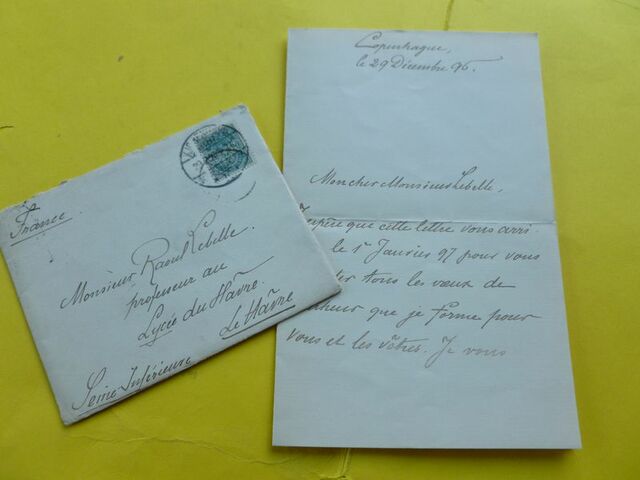 France
Monsieur Raoul Lebelle.
professeur au
Lycée du Havre.
Le Hâvre
Seine Inférieure
Copenhague,
le 29 Décembre 96.
Mon cher Monsieur Lebelle,
que cette lettre vous arri
le 1er Janvier 97 pour vous
tous les vœux de
que je forme pour
vous et les vôtres. Je vous